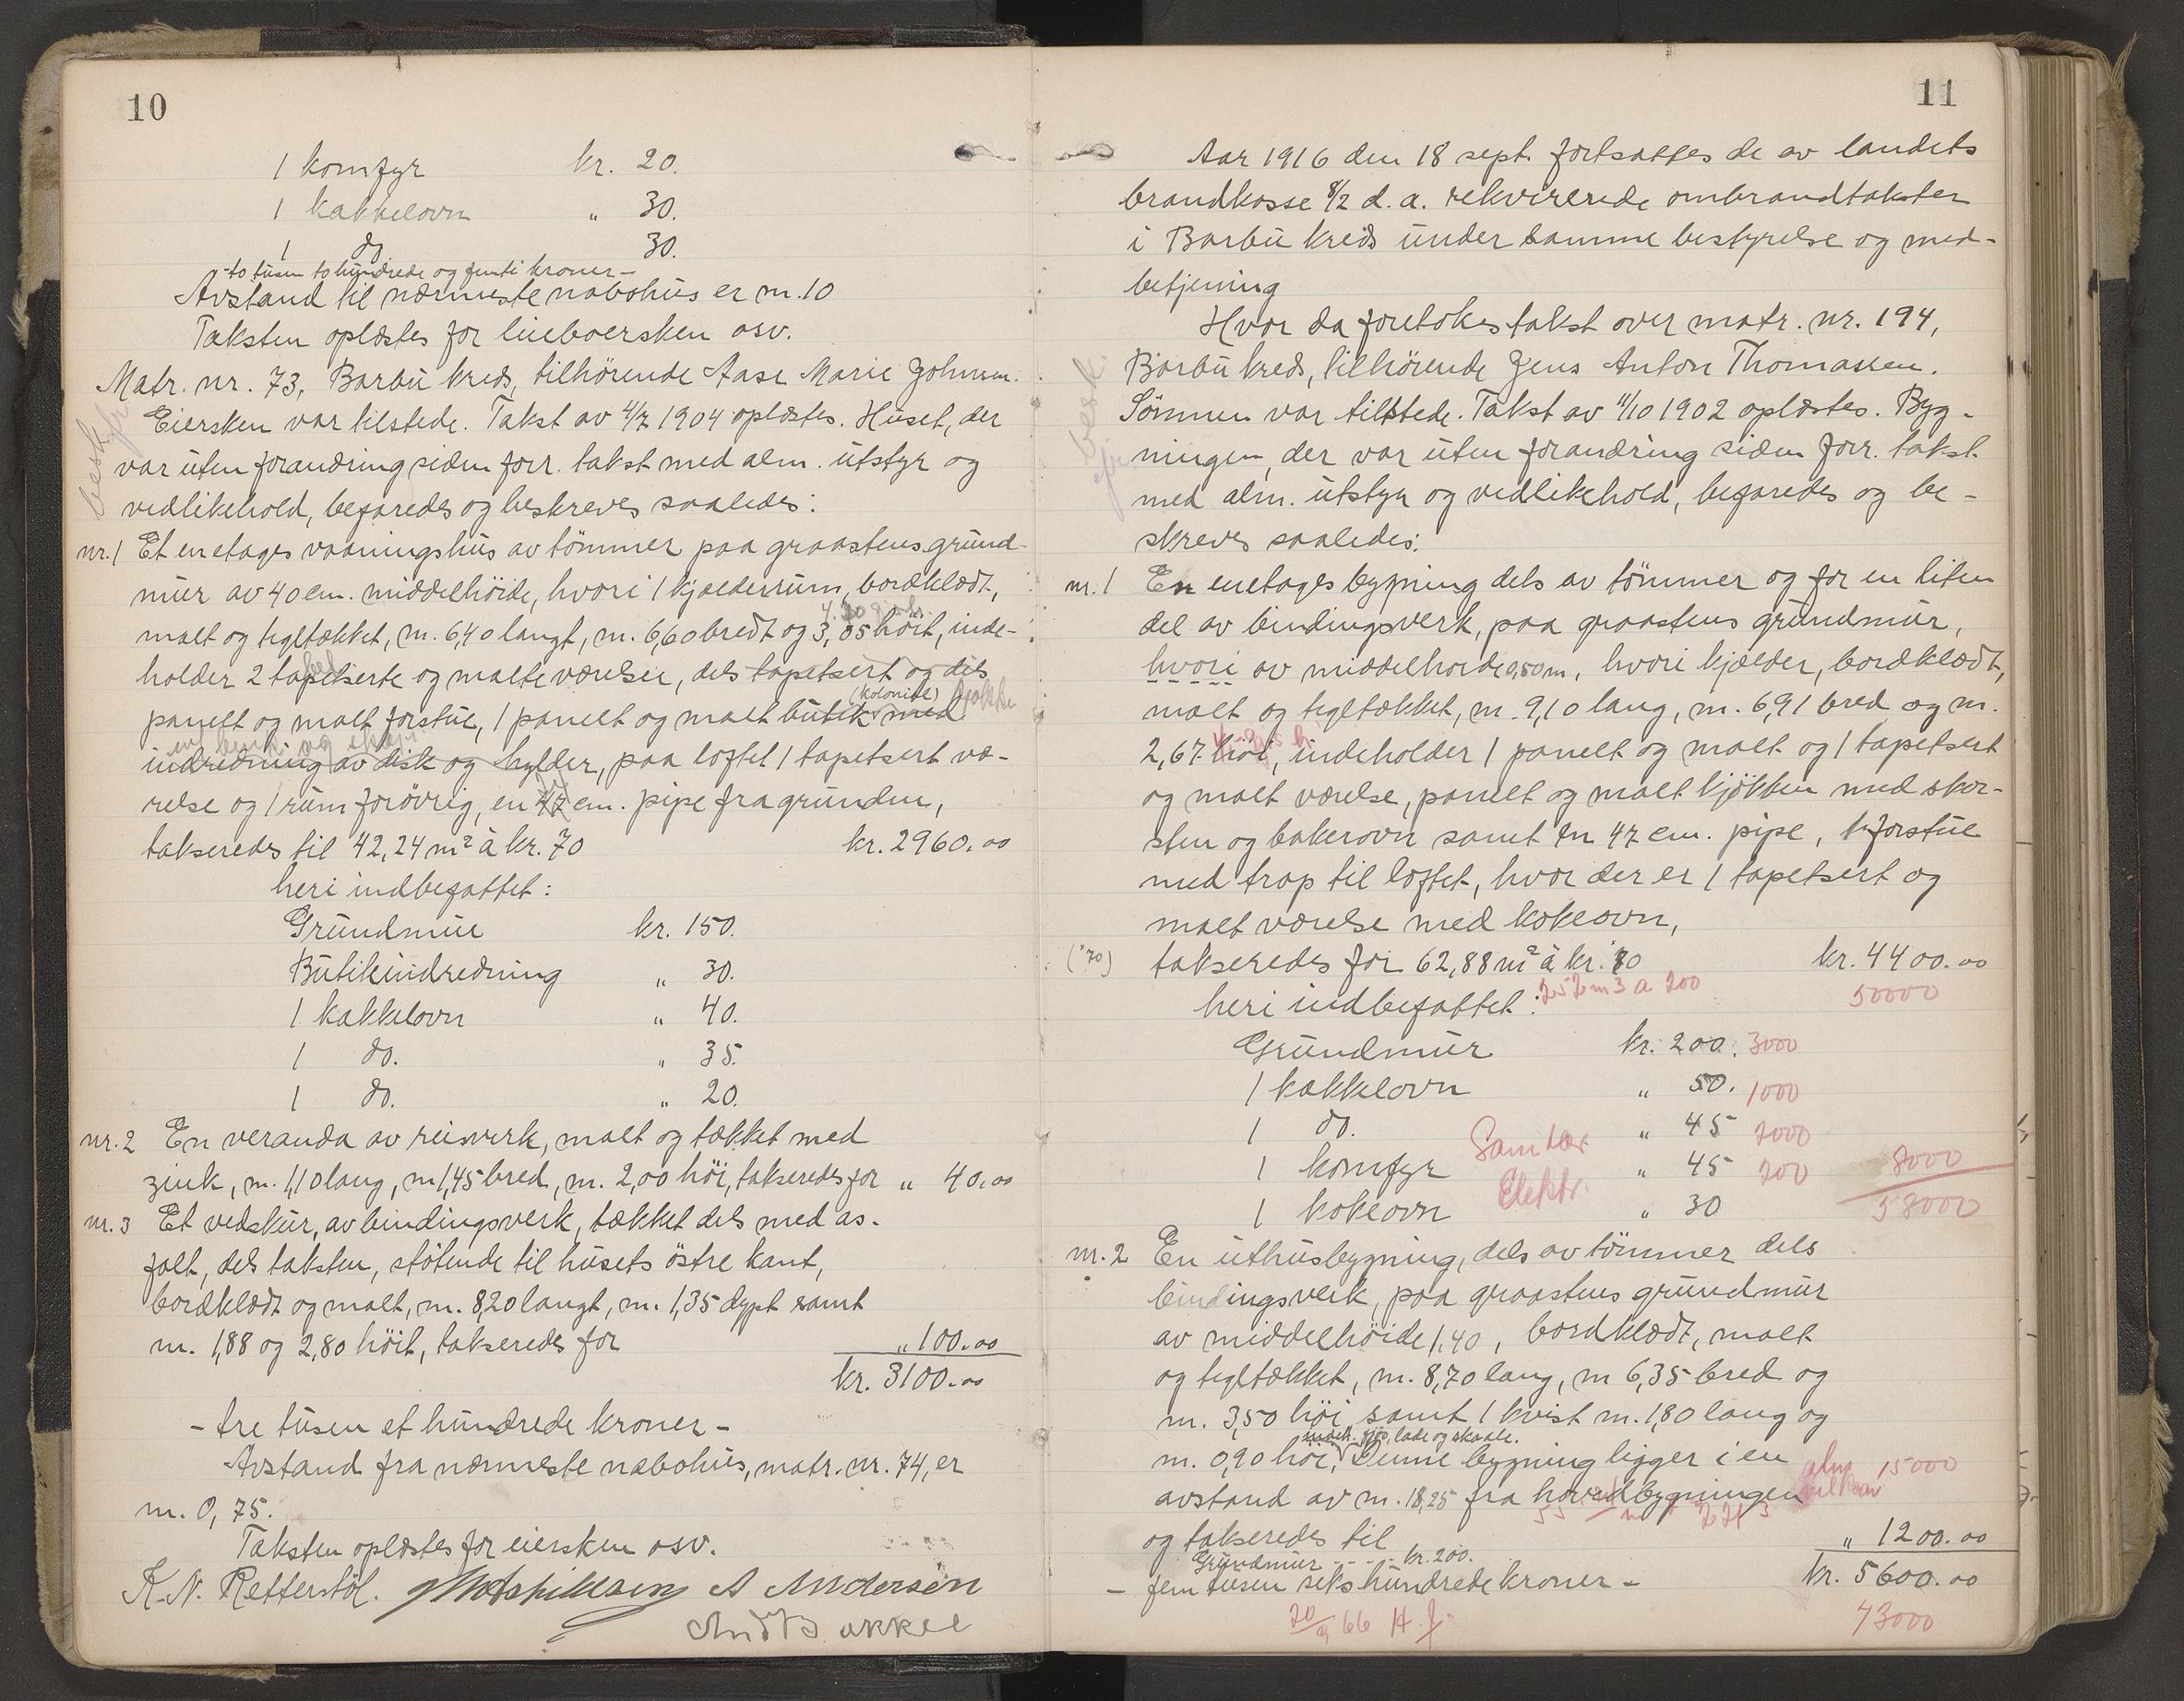 10
1 komfyr kr. 20.
1 kakkelovn " 30.
1 do. 30.
- to tusen to hundrede og femti kroner -
Avstand til nærmeste nabohus er m. 10
Taksten oplæstes for lieboersken osv.
Matr. nr. 73, Barbu kreds, tilhörende Aase Marie Johnsen.
Eiersken var tilstede. Takst av 4/7 1904 oplæstes. Huset, der
var uten forandring siden forr. takst med alm. utstyr og
vedlikehold, befaredes og beskreves saaledes:
nr. 1 Et enetages vaaningshus av tömmer paa graastens grund-
mur av 40 cm. middelhöide, hvori 1 kjælderrum, bordklædt,
malt og tegltækket, m. 6,40 langt, m. 6,60 bredt og 3,05 höit, inde-
holder 2 tapetserte og malte værelser, dels tapetsert og dels
panelt og malt forstue, 1 panelt og malt butik med
(kolonial)
indredning av disk og hylder, paa loftet 1 tapetsert væ-
relse og 1 rum forövrig, en 47 cm. pipe fra grunden,
takseredes til 42,24 m² à kr. 70 kr. 2960.00
heri indbefattet:
Grundmur kr. 150.
Butikindredning " 30.
1 kakkelovn " 40.
1 do. " 35.
1 do. " 20.
nr. 2 En veranda av reisverk, malt og tækket med
zink, m. 1,10 lang, m 1,45 bred, m. 2,00 höi, takseredes for " 40.00
nr. 3 Et vedskur, av bindingsverk, tækket dels med as-
falt, dels taksten, stötende til husets östre kant,
bordklædt og malt, m. 8,20 langt, m. 1,35 dypt samt
m. 1,88 og 2,80 höit, takseredes for " 100.00
kr. 3100.00
- tre tusen et hundrede kroner -
Avstand fra nærmeste nabohus, matr. nr. 74, er
m. 0,75.
Taksten oplæstes for eiersken osv.
K. N. Retterstöl. A Andersen
11
Aar 1916 den 18 sept. fortsattes de av landets
brandkasse 8/2 d. a. rekvirerede ombrandtakster
i Barbu kreds under samme bestyrelse og med-
betjening
Hvor da foretokes takst over matr. nr. 194,
Barbu kreds, tilhörende Jens Anton Thomassen.
Sönnen var tilstede. Takst av 11/10 1902 oplæstes. Byg-
ningen, der var uten forandring siden forr. takst
med alm. utstyr og vedlikehold, befaredes og be-
skreves saaledes:
nr. 1 En enetages bygning dels av tömmer og for en liten
del av bindingsverk, paa graastens grundmur,
hvori av middelhöide 0,50 m, hvori kjælder, bordklædt,
malt og tegltækket, m. 9,10 lang, m. 6,91 bred og m.
2,67 höi, indeholder 1 panelt og malt og 1 tapetsert
og malt værelse, panelt og malt kjökken med skor-
sten og bakerovn samt en 47 cm. pipe, 1 forstue
med trap til loftet, hvor der er 1 tapetsert og
malt værelse med kokeovn,
("70) takseredes for 62,88 m² à kr. 70 kr. 4400.00
252 m3 a 200 50000
heri indbefattet:
Grundmur kr. 200. 3000
1 kakkelovn " 50. 1000
1 do. " 45 2000
1 komfyr Sanitær " 45 200 8000
1 kokeovn Elektr. " 30 58000
nr. 2 En uthusbygning, dels av tömmer dels
bindingsverk, paa graastens grundmur
av middelhöide 1,40, bordklædt, malt
og tegltækket, m. 8,70 lang, m 6,35 bred og
m. 3,50 höi samt 1 kvist m. 1,80 lang og
indeh. fjös, lade og skaale.
m. 0,90 höi, Denne bygning ligger i en
alm 15000
avstand av m. 18,25 fra hovedbygningen
og takseredes til " 1200.00
Grundmur - - - - kr. 200.
- fem tusen seks hundrede kroner - kr. 5600.00
20/9 66 H.J. 73000